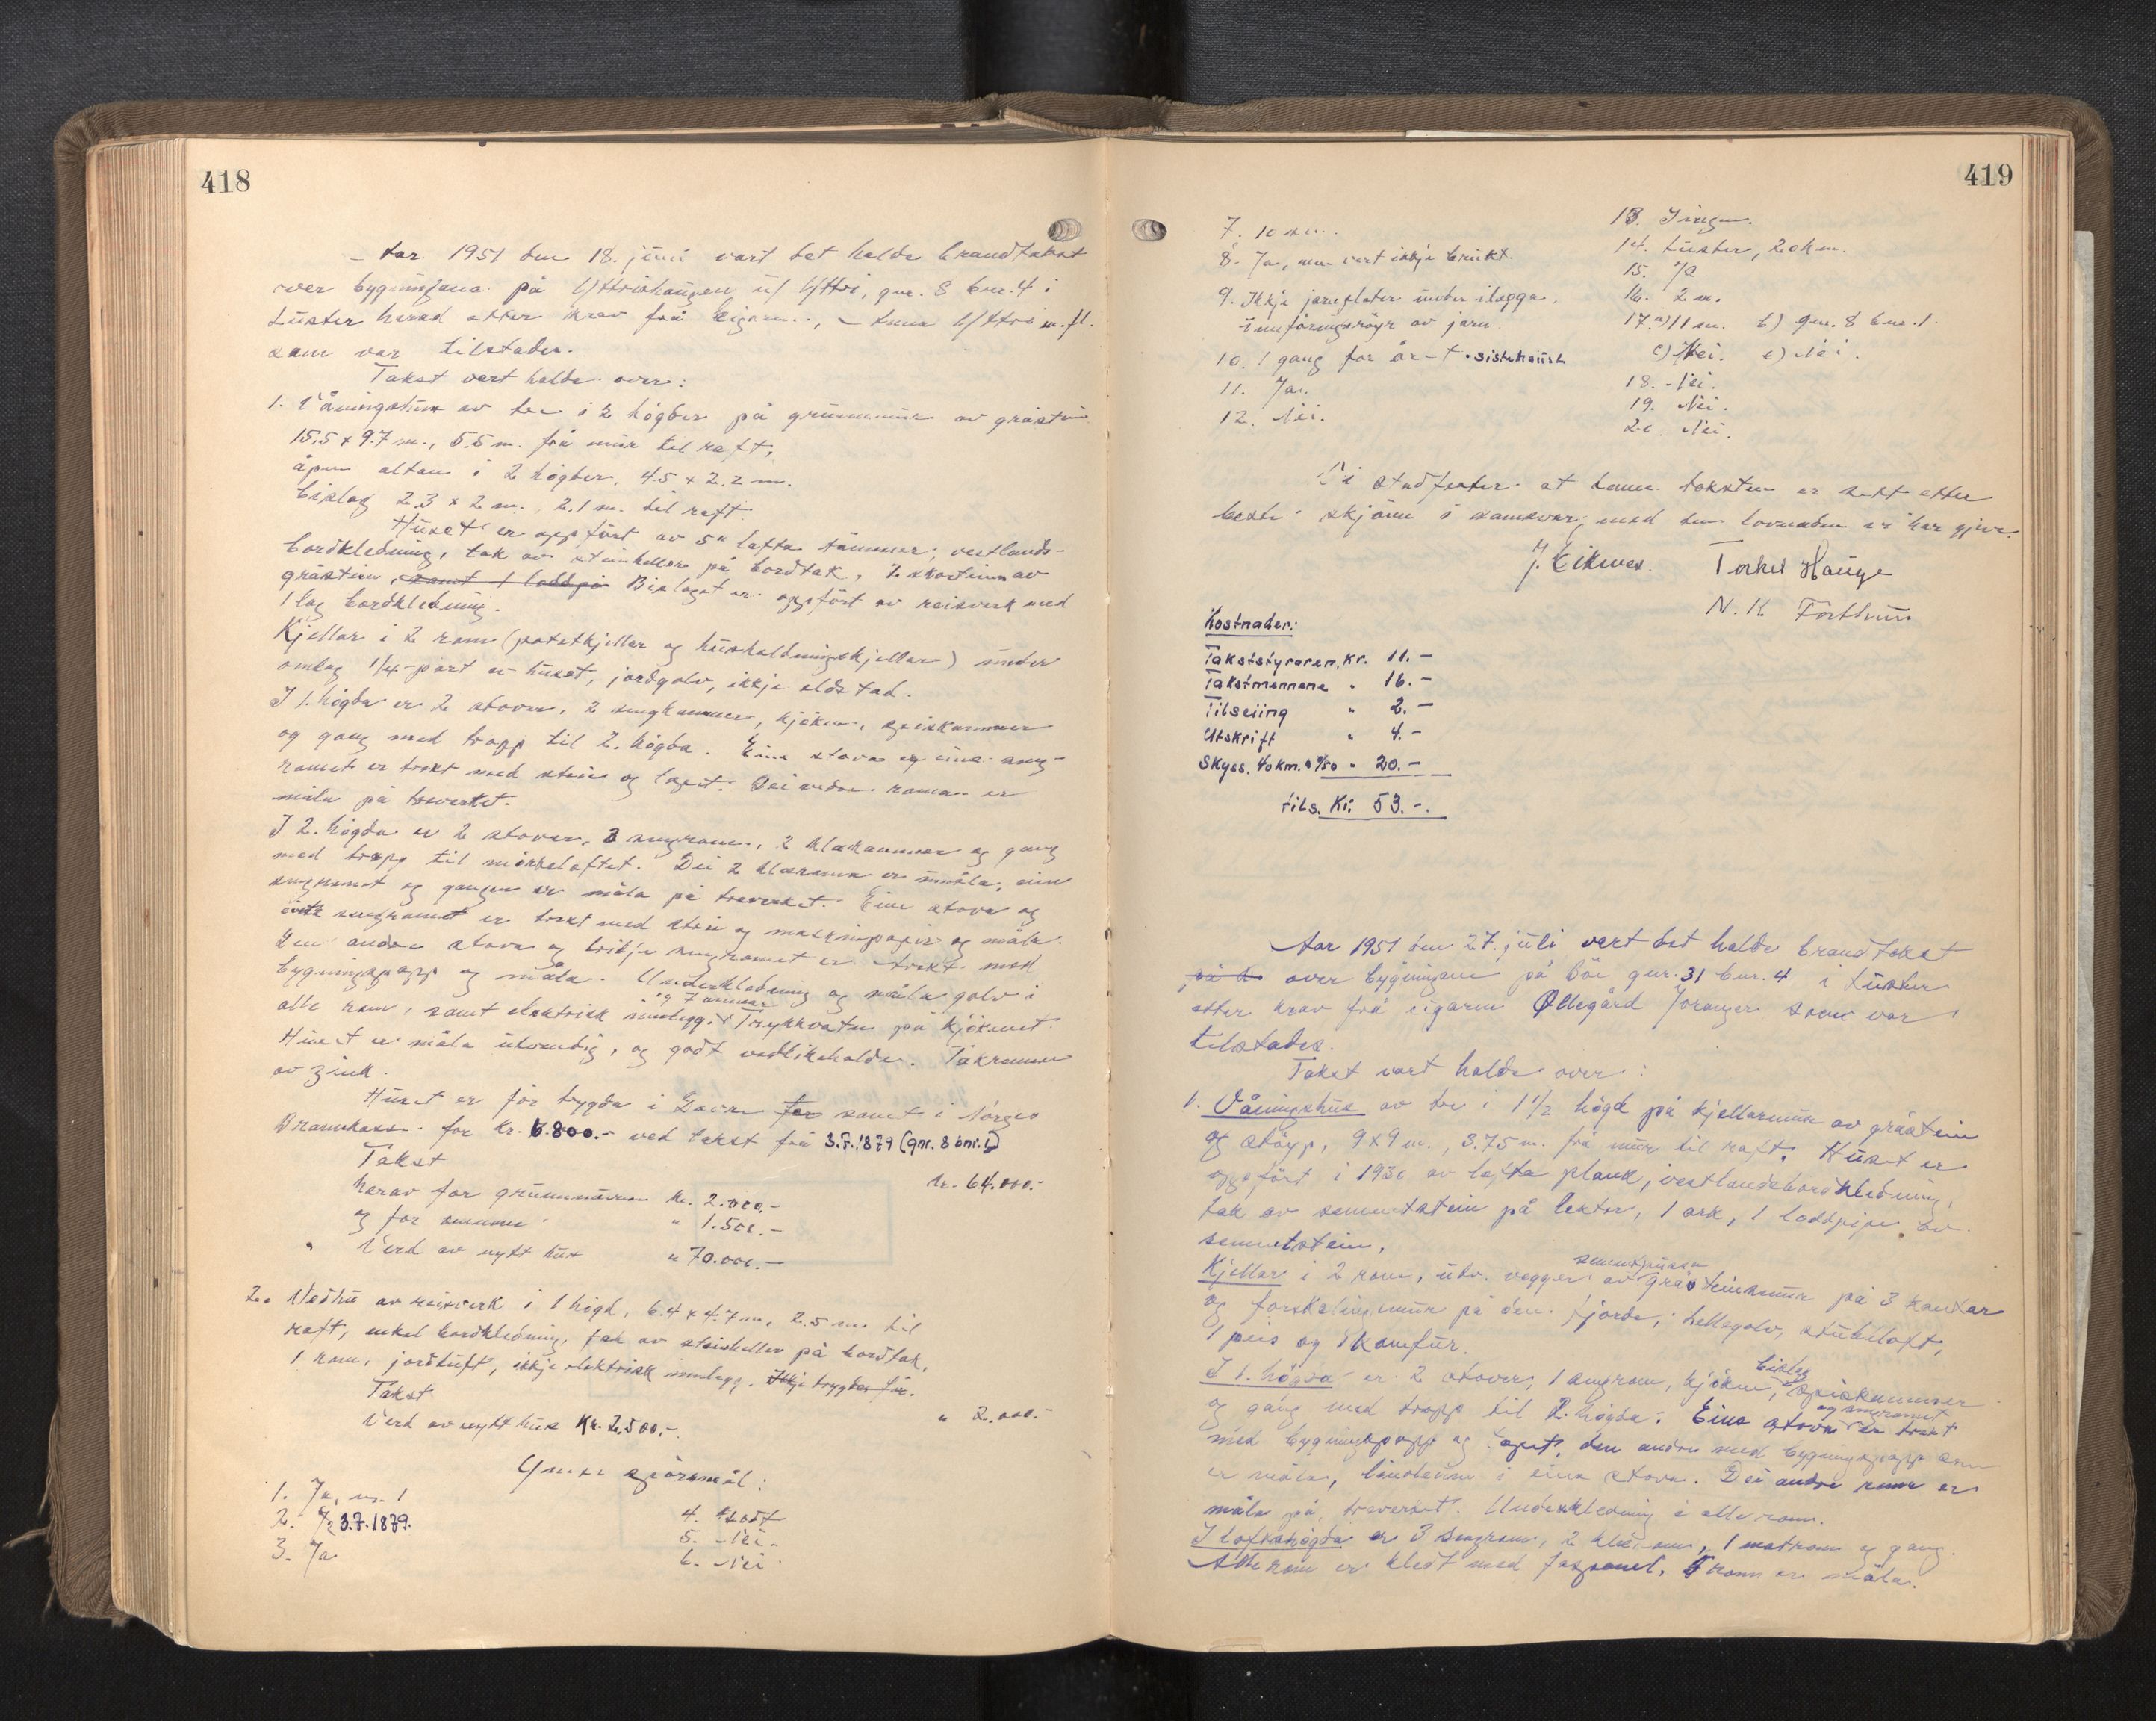 418
Aar 1951 den 18. juni vart det halde brandtakst
over bygningana på Yttrishaugen u/ Yttri, gnr. 8 bnr. 4 i
Luster herad etter krav frå eigaren, Yttri m. fl.
som var tilstades.
Takst vart halde over:
1. Våningshus av tre i 2 högder på grunnmur av gråstein
15,5 x 9.7 m., 5.5 m. frå mur til raft,
åpen altan i 2 högder, 4.5 x 2.2 m.
bislag 2.3 x 2 m., 2.1 m. til raft.
Huset er oppfört av 5" lafta tömmer, vestlands-
bordkledning, tak av steinheller på bordtak, 2 skorsteinar av
gråstein, samt 1 loddpipe Bislaget er oppfört av reisverk med
1 lag bordkledning.
Kjellar i 2 rom (potetkjellar og hushaldningskjellar) under
omlag 1/4-part av huset, jordgolv, ikkje eldstad.
I 1. högda er 2 stover, 2 sengkammer, kjöken, speiskammer
og gang med tropp til 2. högda. Eine stova og eine seng-
romet er trekt med strie og tapet. Dei andre romma er
måla på treverket.
I 2. högda er 2 stover, 3 sengrom, 2 klækammer og gang
med tropp til mörkeloftet. Dei 2 klæromma er umåla, ein
sengromet og gangen er måla på treverket. Eine stova og
eitt sengromet er trekt med strie og maskinpapir og måla.
Den andre stova og tridje sengromet er trekt med
bygningspapp og måla. Underkledning og måla golv i
alle rom, samt elektrisk innlegg. og 7 omnar Trykkvatn på kjökenet.
Huset er måla utvendig, og godt vedlikehalde. Takrenner
av zink.
Huset er för trygda i Lavre for samt i Norges
Brannkasse for kr. 6.800.- ved takst frå 3.7.1879 (gnr. 8 bnr. 1)
Takst kr. 64.000.-
herav for grunnmuren kr. 2.000.-
og for " 1.500.-
Verd av nytt hus " 70.000.-
2. Vedhus av reisverk i 1 högd, 6.4 x 4.7 m, 2.5 m til
raft, enkel bordkledning, tak av steinheller på bordtak,
1 rom, jordtuft, ikkje elektrisk innlegg. Ikkje trygda för.
Takst " 2.000.-
Verd av nytt hus Kr. 2,500,-.
Ymse spörsmål:
1. Ja, nr. 1
2. 3.7.1879.
3. Ja
4. Godt
5. Nei.
6. Nei
419
7. 10 m.
8. Ja, men vert ikkje brukt.
9. Ikkje jarnplater under ilegga.
Innföringsröyr av jarn
10. 1 gang for år-t. sistehaust
11. Ja.
12. Nei.
13. Ingen.
14. Luster, 20 km.
15. Ja
16. 2 m.
17. a) 11 m. b) gnr. 8 bnr. 1.
c) Nei. e) Nei.
18. Nei.
19. Nei.
20. Nei.
Vi stadfester at denne taksten er sett etter
beste skjönn i samsvar, med den lovnaden vi har gjeve.
J. Eikenes. Torkel Hauge
N. K Forthun
Kostnader:
Takststyraren, Kr. 11.-
Takstmennene " 16.-
Tilseiing " 2.-
Utskrift " 4.-
Skyss. 40 km. a 0/50 " 20.-
tils. Kr. 53.-.
Aar 1951 den 27. juli vart det halde brandtakst
på b over bygningane på Böe gnr. 31 bnr. 4 i Luster
etter krav frå eigaren Øllegård Joranger som var
tilstades.
Takst vart halde over:
1. Våningshus av tre i 1 1/2 högd på kjellarmur av gråstein
og støyp, 9 x 9 m., 3.75 m. frå mur til raft. Huset er
oppfört i 1930 av lafta plank, vestlandsbordkledning,
tak av sementstein på lekter, 1 ark, 1 loddpipe av
sementstein.
Kjellar i 2 rom, utv. vegger av gråsteinsmur på 3 kantar
og forskalingsmur på den fjorde, hellegolv, stubeloft,
1 peis og 1 komfur.
I 1. högda er 2 stover, 1 sengrom, kjöken, bislag, speiskammer
og gang med tropp til 2. högda. Eine stova og sengromet er trekt
med bygningspapp og tapet, den andre med bygningspapp som
er måla, linoleum i eine stova. Dei andre romm er
måla på treverket. Underkledning i alle rom.
I loftshögda er 3 sengrom, 2 klærom, 1 matrom og gang.
Alle rom er kledt med faspanel, 5 rom er måla.